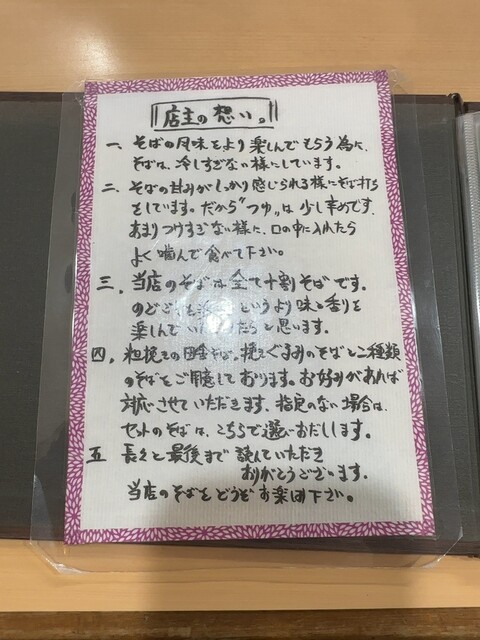 店主の想い。
一、そばの風味をより楽しんでもらう為に、
そばは、冷しすぎない様にしています。
二、そばの甘みがしっかり感じられる様にそば打ち
をしています。だから"つゆ"は少し辛めです。
あまりつけすぎない様に、口の中に入れたら
よく噛んで食べて下さい。
三、当店のそばは全て十割そばです。
のどごしを というより味と香りを
楽しんでい たらと思います。
四、粗挽きの田舎そば、挽きぐるみのそばと二種類
のそばをご用意しております。お好みがあれば
対応させていただきます。指定のない場合は、
セットのそばは、こちらで選びおだしします。
五 長々と最後まで読んでいただき
ありがとうございます。
当店のそばをどうぞお楽しみ下さい。